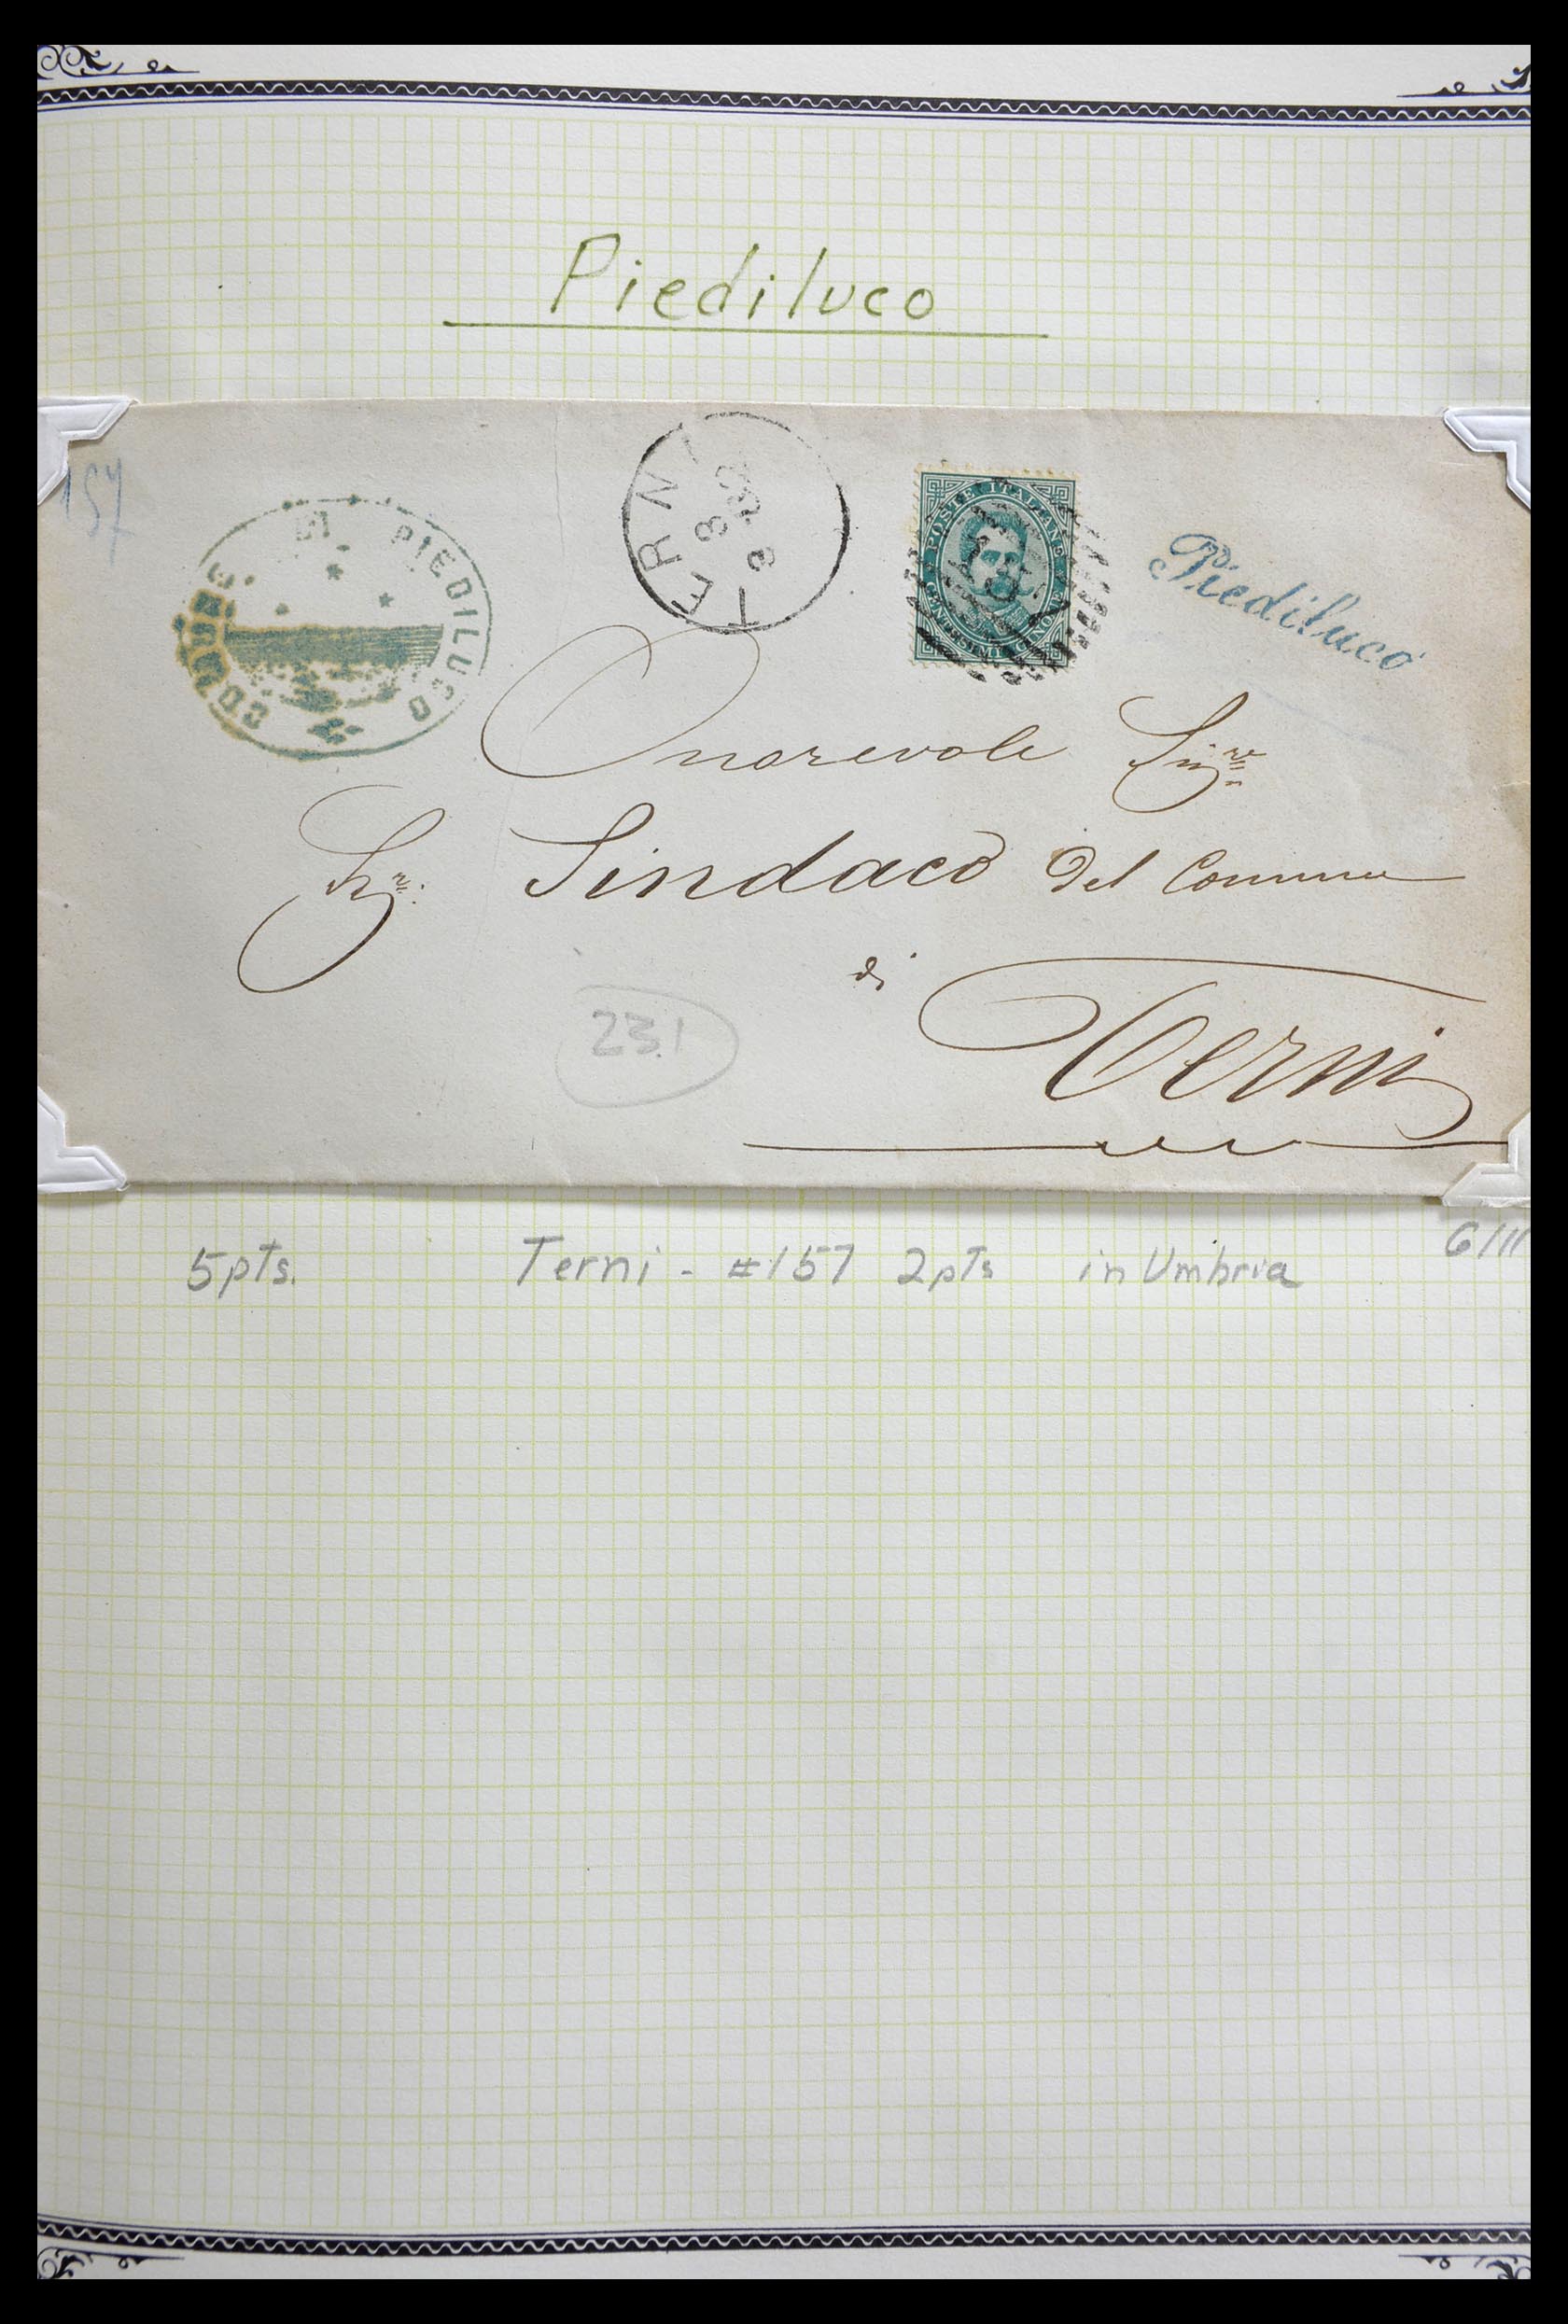 Piediluco
157
COMUNE DI PIEDILUCO
TERNI
POSTE ITALIANE
CENTESIMI CINQUE
Piediluco
Onorevole Sigre
Sigr. Sindaco Del Comune
di
Terni
231
5pts. Terni - #157 2pts in Umbria 6/11